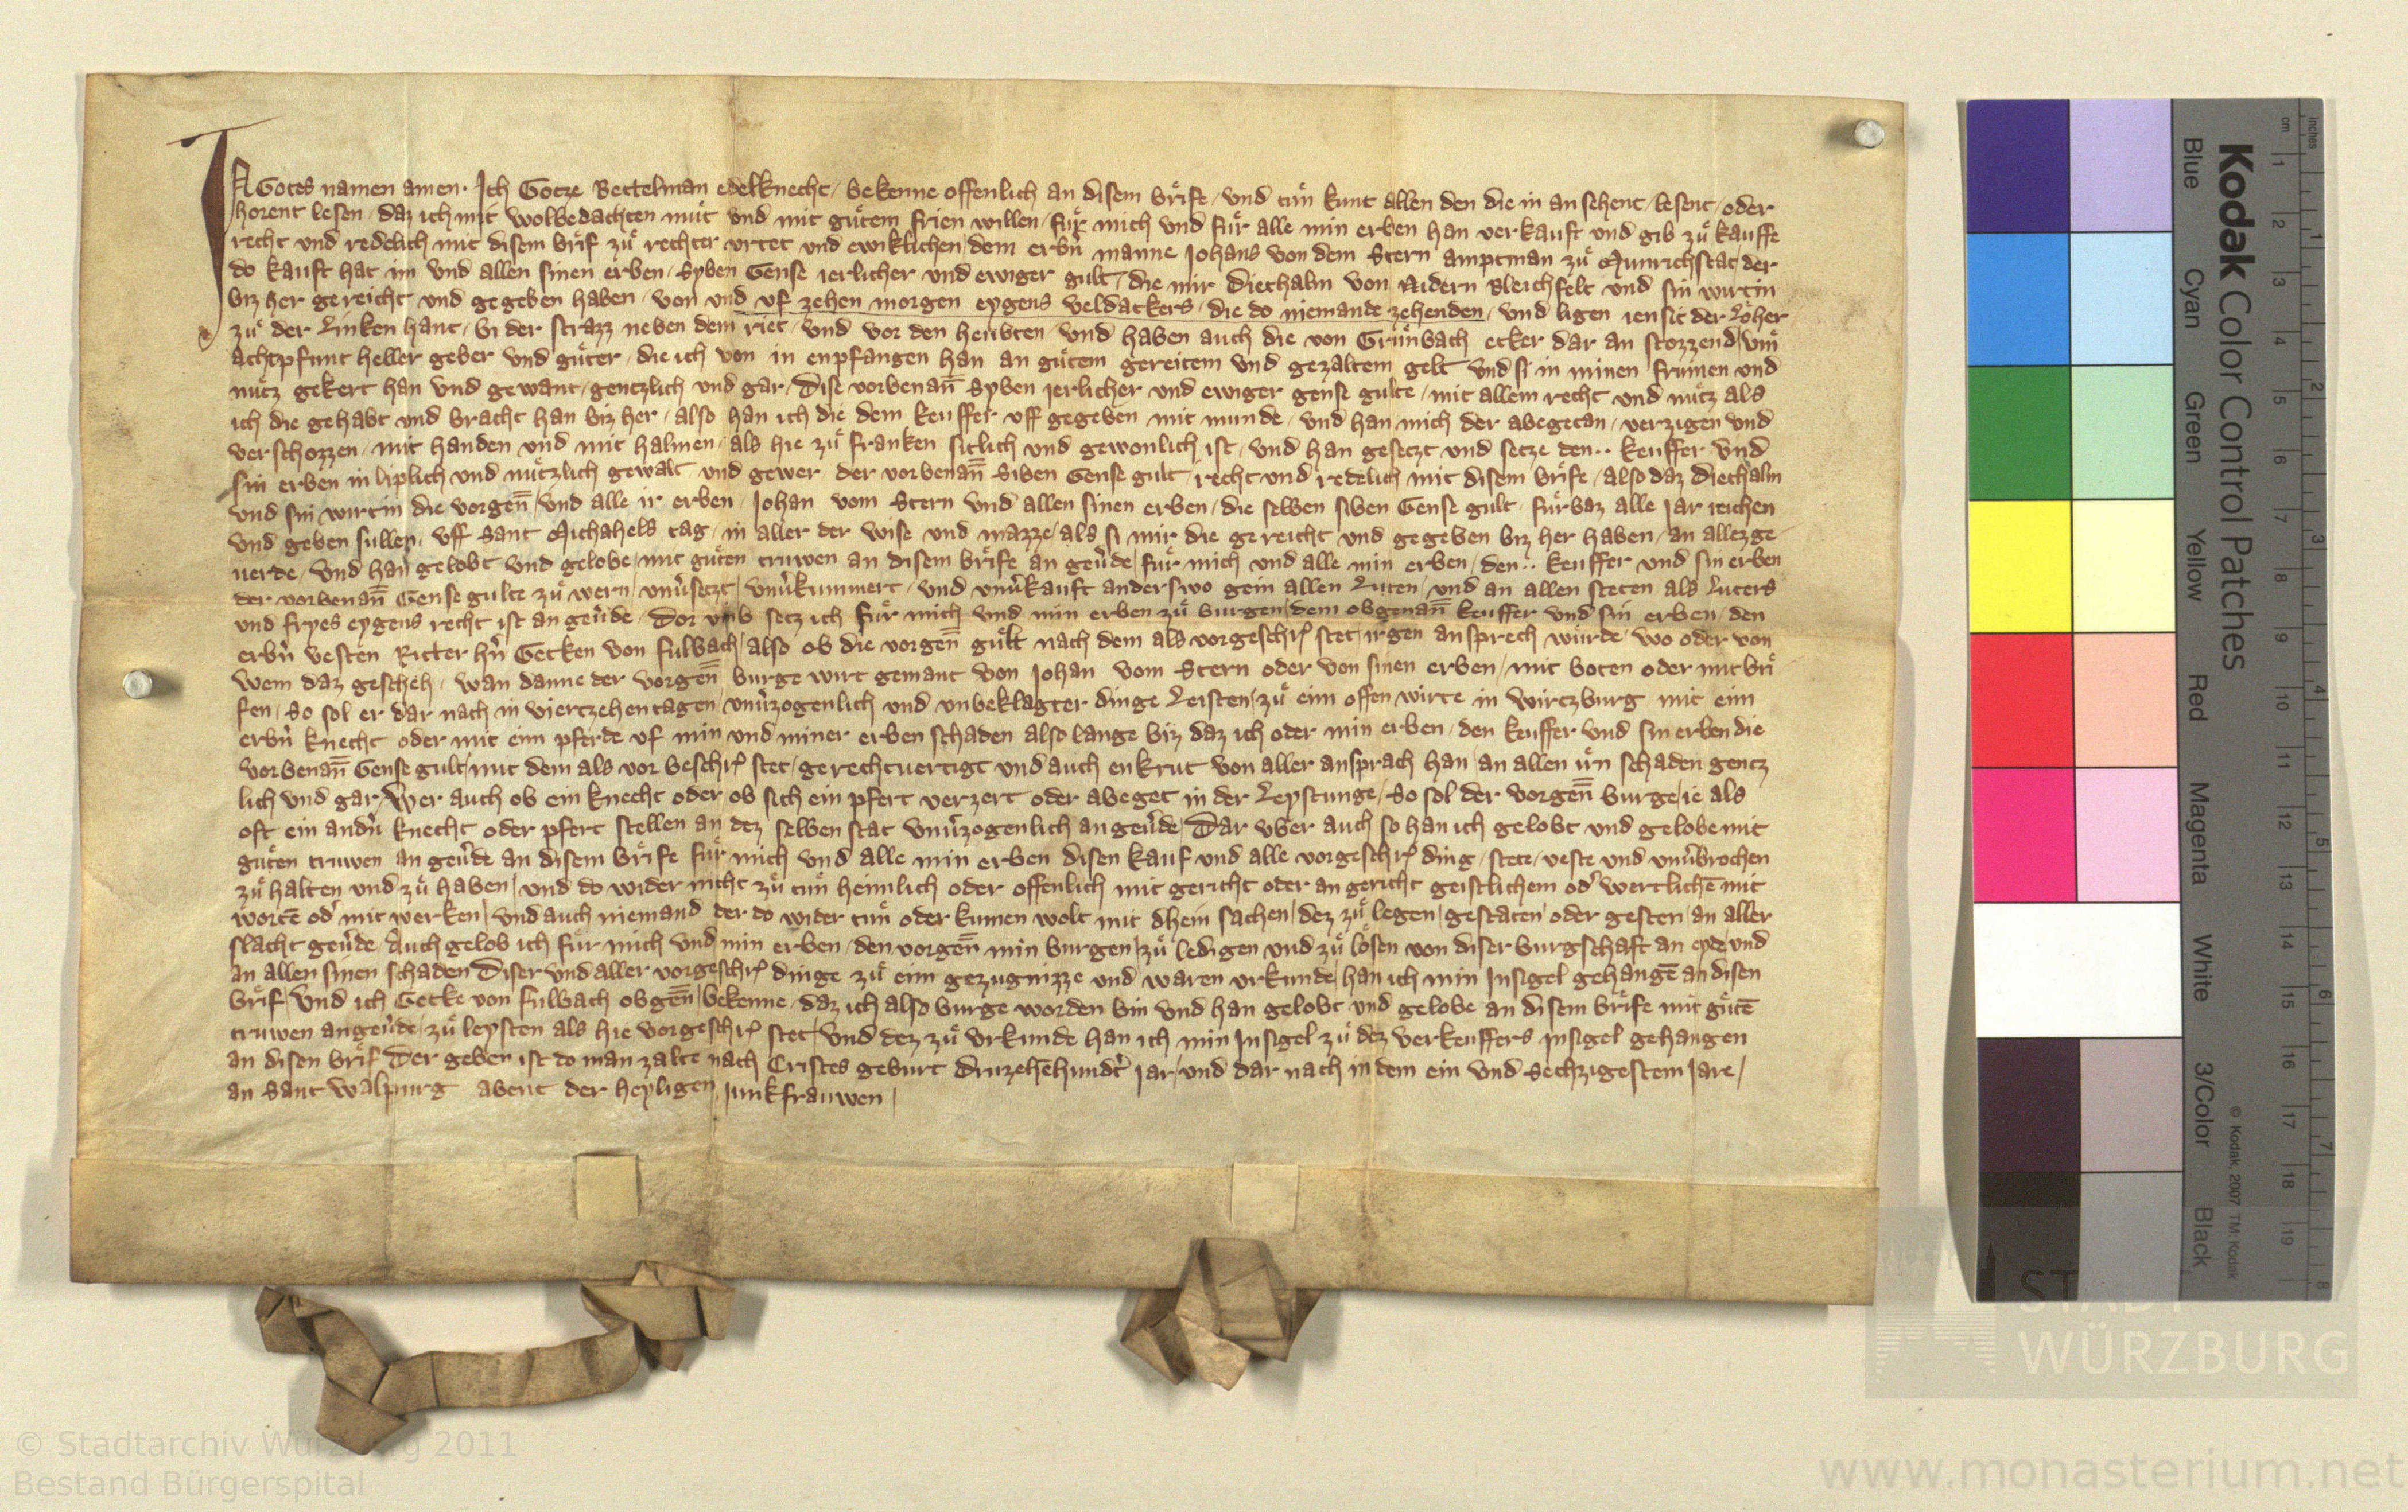 IN Gotes namen amen. Ich Gotze Bettelman edelknecht / bekenne offenlich an disem brife / vnd tůn kunt allen den die in an sehent / lesent / oder
horent lesen / daz ich mit wolbedachten můt vnd mit gůtem frien willen / fůr mich vnd fůr alle min erben han verkauft vnd gib zů kauffe
recht vnd redelich mit disem brif zů rechter vrtet vnd ewiklichen dem erbñ manne Johans von dem Stern amptman zů Munrichstat der
do kauft hat im vnd allen sinen erben / Syben Gense ierlicher vnd ewiger gult / die mir Diethalm von Nidern Bleichfelt vnd sin wirtin
biz her gereicht vnd gegeben haben / von vnd vf zehen morgen eygens veldackers / die do niemande zehenden / vnd ligen iensit der Loͤher
zů der Linken hant / bi der strazz neben dem riet / vnd vor den heubten / vnd haben auch die von Grůnbach ecker dar an stozzend / vm
achtpfunt heller geber vnd gůter / die ich von in enpfangen han an gůtem gereitem vnd gezaltem gelt vnd si in minen frumen vnd
nůtz gekert han vnd gewant / gentzlich vnd gar / Dise vorbenan̄ Syben ierlicher vnd ewiger gense gulte / mit allem recht vnd nůtz als
ich die gehabt vnd bracht han biz her / also han ich die dem keuffer vff gegeben mit munde / vnd han mich der abegetan / verzigen vnd
verschozzen / mit handen vnd mit halmen / als hie zů franken sitlich vnd gewonlich ist / vnd han gesetzt vnd setze den .. keuffer vnd
sin erben in liplich vnd nůtzlich gewalt vnd gewer der vorbenan̄ Siben Gense gult / recht vnd redelich mit disem brife / also daz Diethalm
vnd sin wirtin die vorgen̄ vnd alle ir erben / Johan vom Stern vnd allen sinen erben / die selben siben Gense gult / fůrbaz alle Jar reichen
vnd geben sullen / vff Sant Michahels tag / in aller der wise vnd mazze / als si mir die gereicht vnd gegeben biz her haben / an allez ge
uerde / vnd han gelobt vnd gelobe / mit gůten truwen an disem brife an geu̓de / fůr mich vnd alle min erben / den .. keuffer vnd sin erben
der vorbenan̄ Gense gulte zů wern / vnu̓setzt / vnu̓kummert / vnd vnu̓kauft anderswo gein allen Luten / vnd an allen steten als Luters
vnd fryes eygens recht ist an geu̓de / Dor vmb setz ich fůr mich vnd min erben zů burgen / dem obgenan̄ keuffer vnd sin erben / den
erbñ vesten Ritter hn̄ Gecken von Fulbach / also ob die vorgen̄ gůlt nach dem als vorgeschr̄ stet irgen ansprech wůrde / wo oder von
wem daz gescheh / wan danne der vorgen̄ burge wirt gemant von Johan vom Stern oder von sinen erben / mit boten oder mit bri
fen / So sol er dar nach in viertzehen tagen vnu̓zogenlich vnd vnbeklagter dinge Leisten / zů eim offen wirte in Wirtzburg mit eim
erbñ knecht oder mit eim pferde vf min vnd miner erben schaden also lange biz daz ich oder min erben / den keuffer vnd sin erben die
vorbenan̄ Gense gult / mit dem als vor beschr̄ stet / gerechtuertigt vnd auch enkrut von aller ansprach han / an allen irn schaden gentz
lich vnd gar / Wer auch ob ein knecht oder ob sich ein pfert verzert oder abeget in der Leystunge / So sol der vorgen̄ burge / ie als
oft ein andn̄ knecht oder pfert stellen an dez selben stat vnu̓zogenlich an geu̓de / Dar vber auch so han ich gelobt vnd gelobe mit
gůten truwen an geu̓de an disem brife fůr mich vnd alle min erben disen kauf vnd alle vorgeschr̄ ding / stete / veste vnd vnu̓brochen
zů halten vnd zů haben / vnd do wider nicht zů tůn heimlich oder offenlich mit gericht oder an gericht geistlichem od̓ wertlichē mit
wortē od̓ mit werken / vnd auch niemand der do wider tůn oder kumen wolt mit dhein sachen / dez zů legen / gestaten oder gesten / an aller
slacht geu̓de / Auch gelob ich fůr mich vnd min erben / den vorgen̄ min burgen / zů ledigen vnd zů loͤsen von diser burgschaft an eyde vnd
an allen sinen schaden Diser vnd aller vorgeschr̄ dinge zů eim gezugnizze vnd waren vrkunde / han ich min Insigel gehangē an disen
brif / Vnd ich Gecke von Fulbach obgen̄ / bekenne / daz ich also burge worden bin vnd han gelobt vnd gelobe an disem brife mit gůtē
truwen an geu̓de / zů leysten als hie vorgeschr̄ stet / vnd dez zů vrkunde han ich min Insigel zů dez verkeuffers insigel gehangen
an disen brif Der geben ist do man zalte nach Cristes geburt druzehēhundt̓ iar / vnd dar nach in dem ein vnd Sechzigestem Jare /
an Sant Walpurg abent der heyligen iunkfrauwen /
Kodak Color Control Patches
Blue Cyan Green Yellow Red Magenta White 3/Color Black
© Kodak, 2007 TM: Kodak
cm 1 2 5 6 7 8 9 10 11 12 13 14 15 16 17 18 19
inches 1 2 3 4 5 6 7 8
STADT
WÜRZBURG
© Stadtarchiv Würzburg 2011
Bestand Bürgerspital
www.monasterium.net